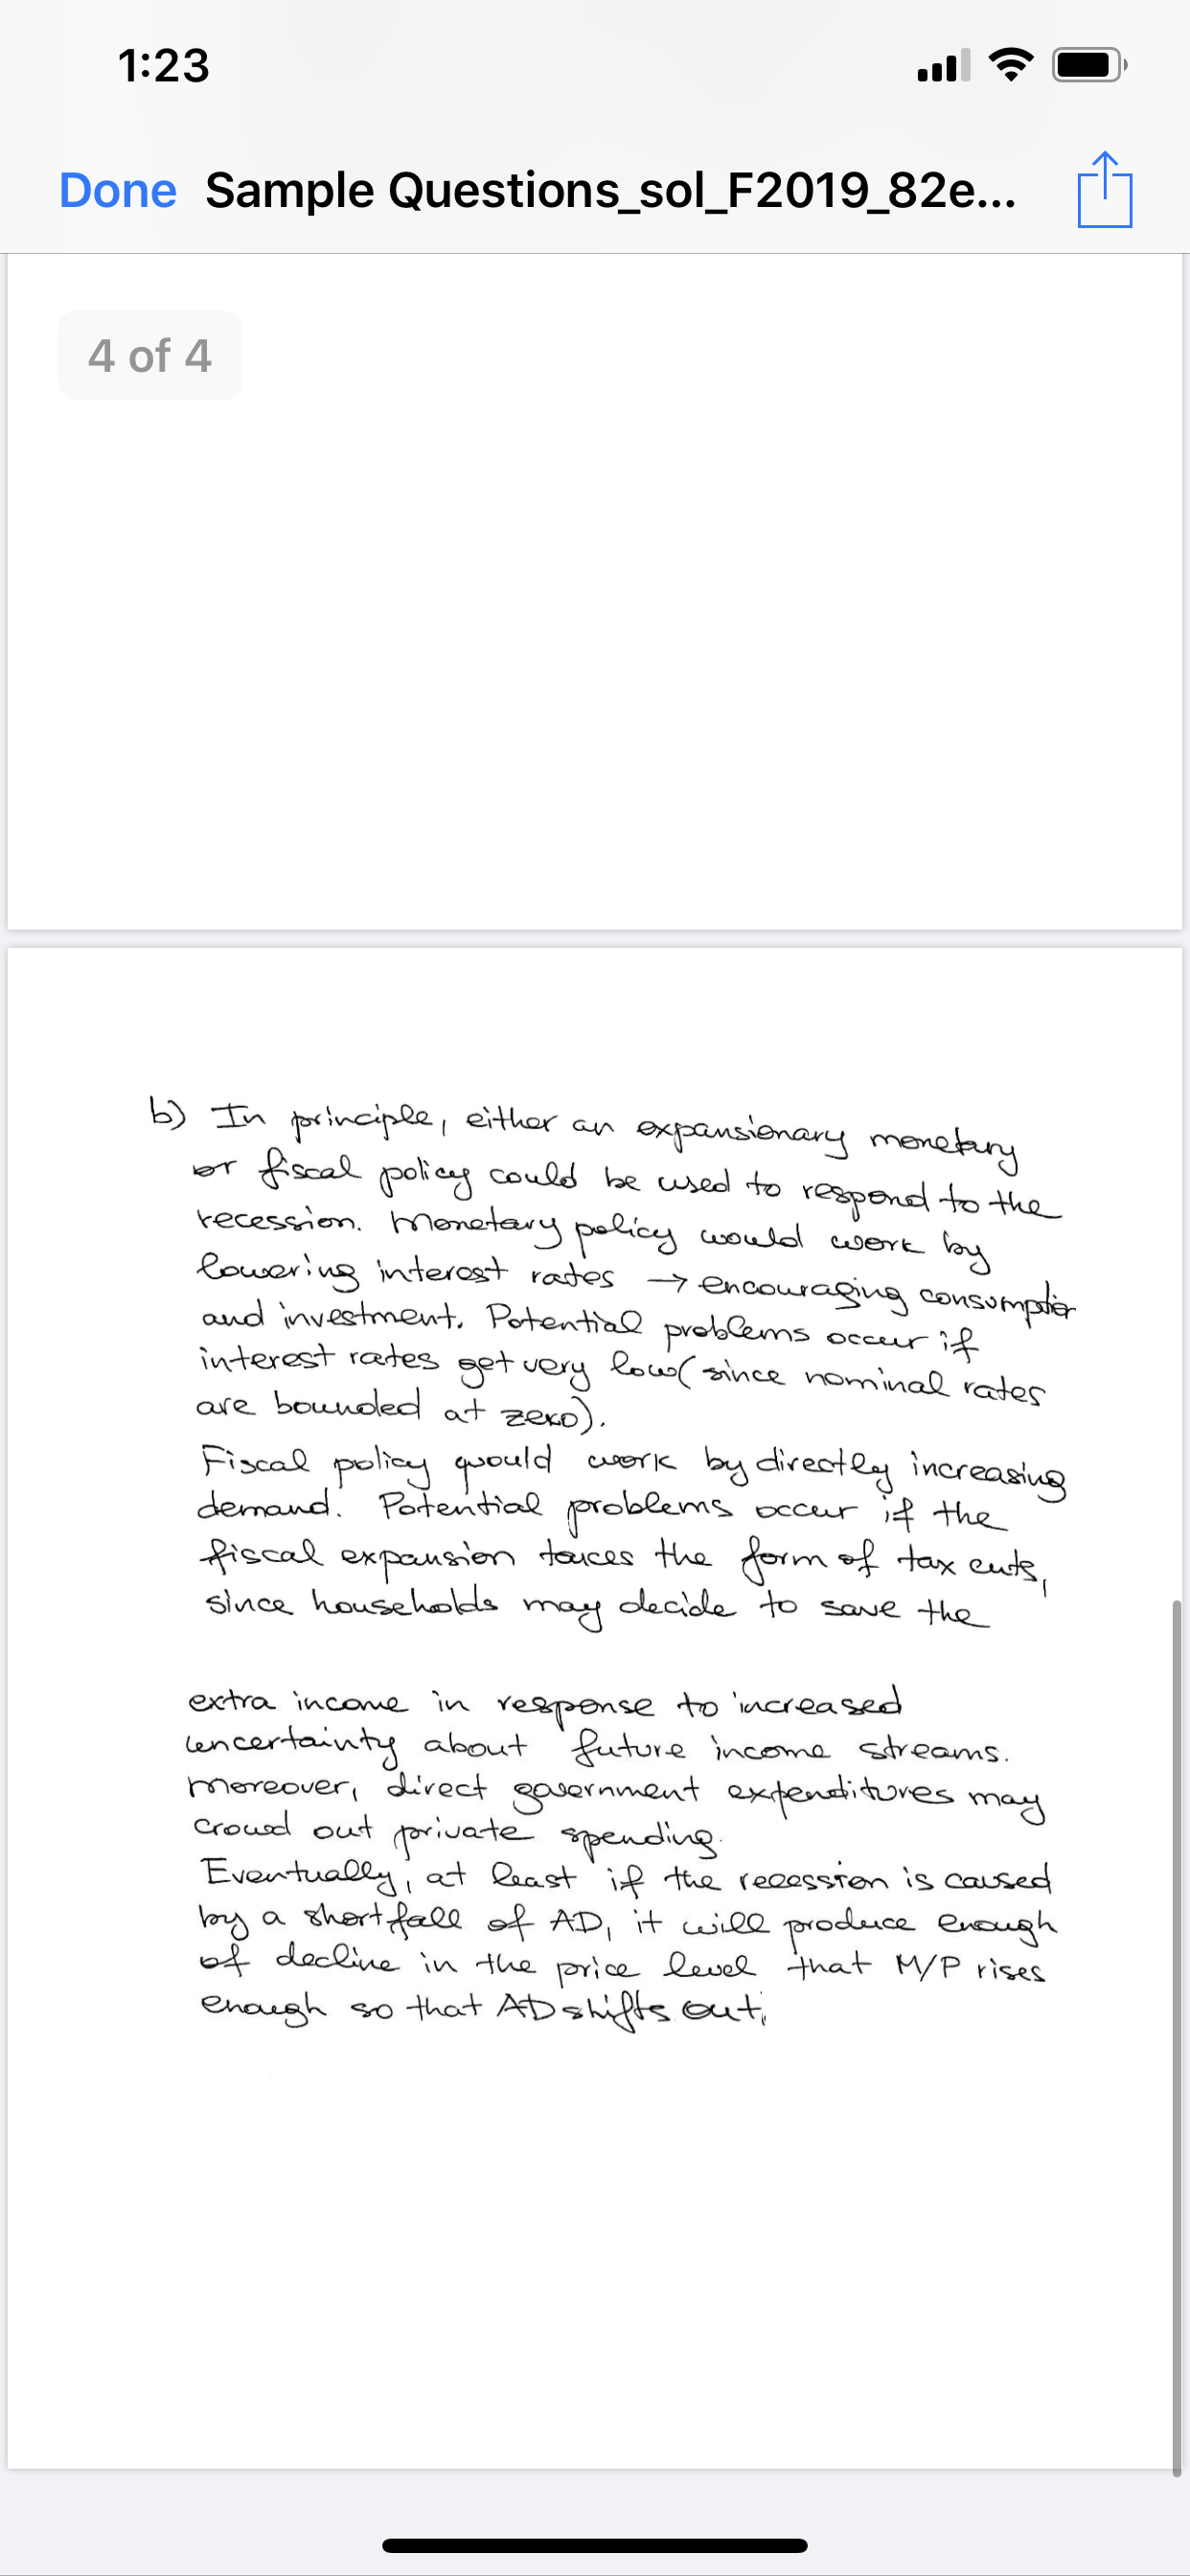 1:23
Done Sample Questions_sol_F2019_82e...
4 of 4
b) In principle, either an expansionary monetary
or fiscal policy could be used to respond to the
recession. Monetary policy would work by
lowering interest rates → encouraging consumption
and investment. Potential problems occur if
interest rates get very low (since nominal rates
are bounded at zero).
Fiscal policy would work by directly increasing
demand. Potential problems occur if the
fiscal expansion takes the form of tax cuts,
since households may decide to save the
extra income in response to increased
uncertainty about future income streams.
Moreover, direct government expenditures may
crowd out private spending.
Eventually, at least if the recession is caused
by a shortfall of AD, it will produce enough
of decline in the price level that M/P rises
enough so that AD shifts out.